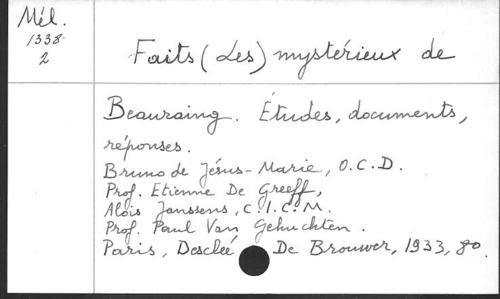 Mél.
1338
2
Faits (Les) mystérieux de
Beauraing. Études, documents,
réponses.
Bruno de Jésus-Marie, O.C.D.
Prof. Etienne De Greeff,
Aloïs Janssens, C.I.C.M.
Prof. Paul Van Gehuchten.
Paris, Desclée De Brouwer, 1933, 8o.